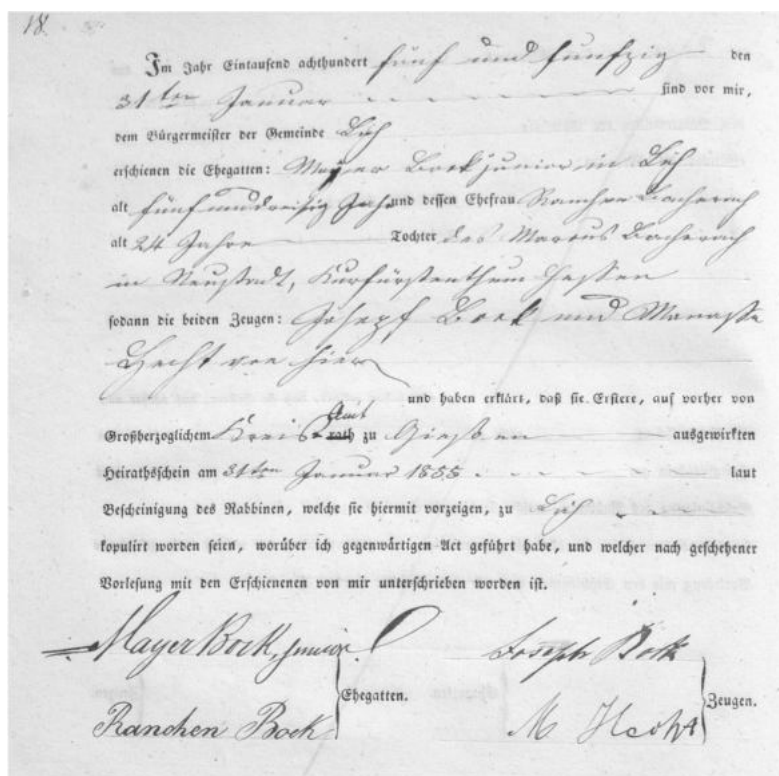 18.
Im Jahr Eintausend achthundert fünf und funfzig den
31ten Januar sind vor mir,
dem Bürgermeister der Gemeinde Lich
erschienen die Ehegatten: Mayer Bock junior in Lich
alt fünfunddreisig Jahr und dessen Ehefrau Ranchen Bacherach
alt 24 Jahre Tochter des Marcus Bacherach
in Neustadt, Kurfürstenthum Hessen
sodann die beiden Zeugen: Joseph Bock und Manasse
Hecht von hier
und haben erklärt, daß sie Erstere, auf vorher von
Großherzoglichem Kreis Amt rath zu Giessen ausgewirkten
Heirathsschein am 31ten Januar 1855 laut
Bescheinigung des Rabbinen, welche sie hiermit vorzeigen, zu Lich
kopulirt worden seien, worüber ich gegenwärtigen Act geführt habe, und welcher nach geschehener
Vorlesung mit den Erschienenen von mir unterschrieben worden ist.
Mayer Bock, junior. Joseph Bock
Ehegatten. Zeugen.
Ranchen Bock. M Hecht